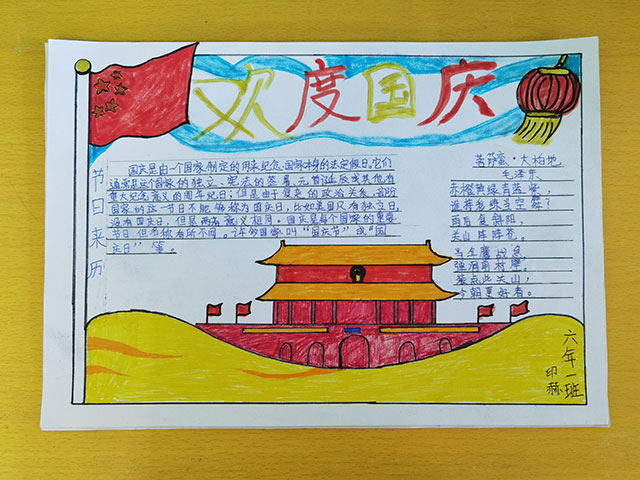 欢度国庆
节日来历
国庆是由一个国家制定的用来纪念国家本身的法定假日,它们
通常是这个国家的独立、宪法的签署、元首诞辰或其他有
重大纪念意义的周年纪日;但是由于复杂的政治关系,部分
国家的这一节日不能够称为国庆日,比如美国只有独立日,
没有国庆日,但是两者意义相同。国庆是每个国家的重要
节日,但名称有所不同。许多国家叫“国庆节”或“国
庆日”等。
菩萨蛮·大柏地
毛泽东
赤橙黄绿青蓝紫,
谁持彩练当空舞?
雨后复斜阳,
关山阵阵苍。
当年鏖战急,
弹洞前村壁。
装点此关山,
今朝更好看。
六年一班
印赫